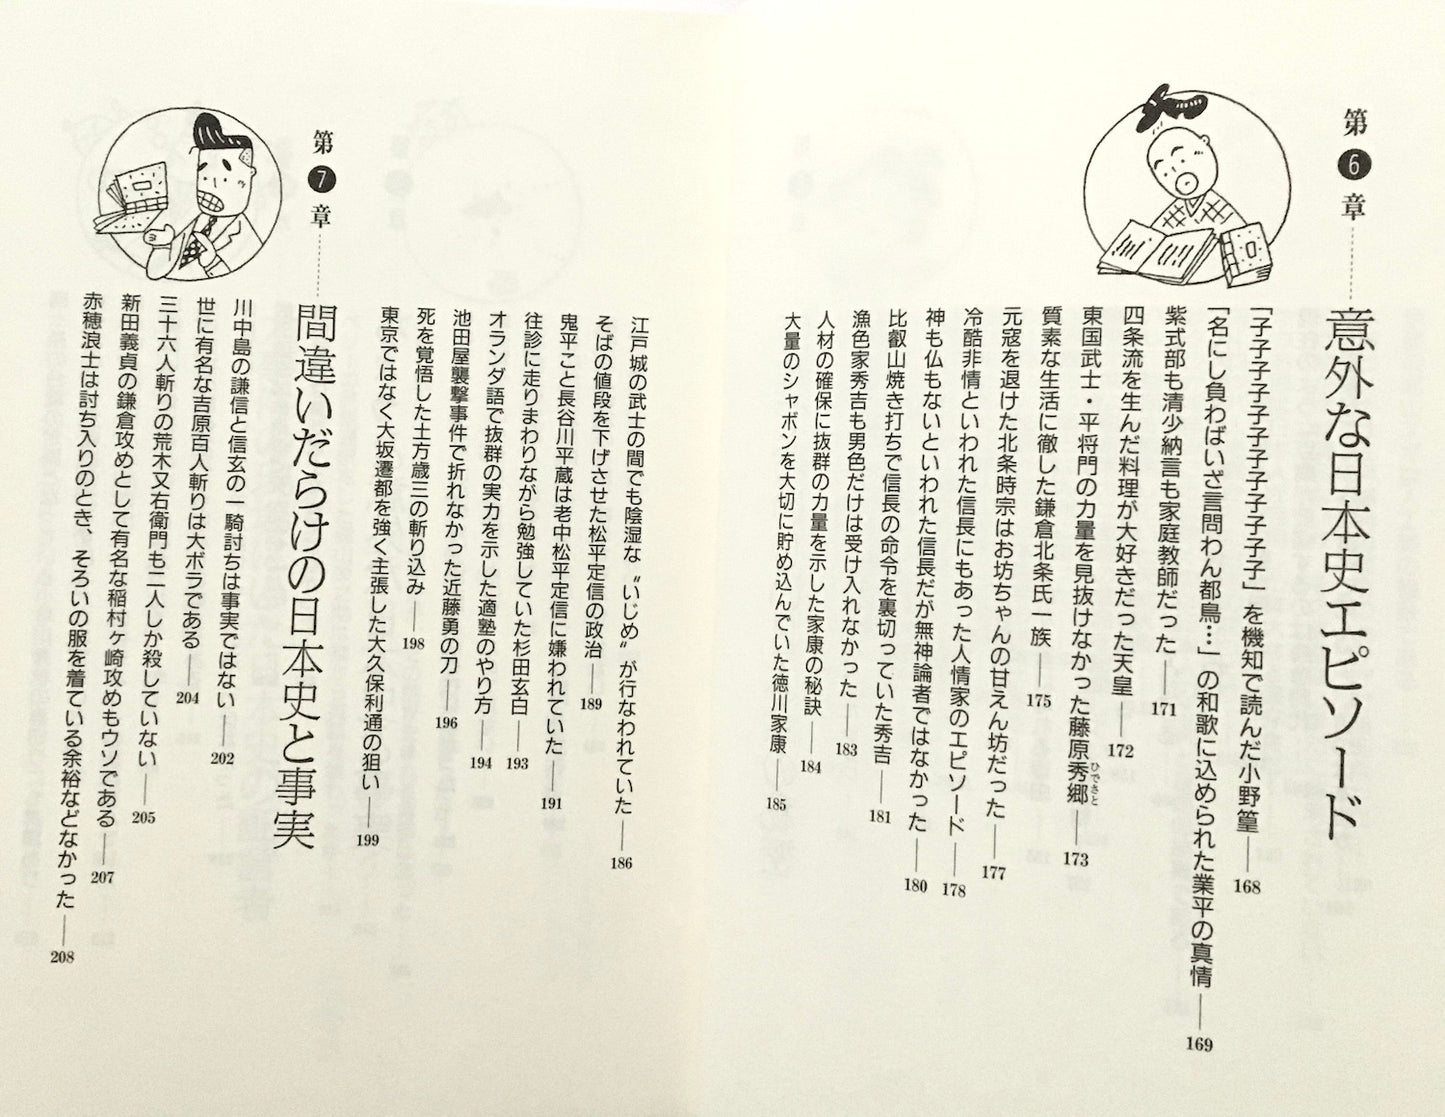 第6章
意外な日本史エピソード
「子子子子子子子子子子子子」を機知で読んだ小野篁——168
「名にし負わばいざ言問わん都鳥…」の和歌に込められた業平の真情——169
紫式部も清少納言も家庭教師だった——171
四条流を生んだ料理が大好きだった天皇——172
東国武士・平将門の力量を見抜けなかった藤原秀郷——173
ひでさと
質素な生活に徹した鎌倉北条氏一族——175
元寇を退けた北条時宗はお坊ちゃんの甘えん坊だった——177
冷酷非情といわれた信長にもあった人情家のエピソード——178
神も仏もないといわれた信長だが無神論者ではなかった——180
比叡山焼き打ちで信長の命令を裏切っていた秀吉——181
漁色家秀吉も男色だけは受け入れなかった——183
人材の確保に抜群の力量を示した家康の秘訣——184
大量のシャボンを大切に貯め込んでいた徳川家康——185
江戸城の武士の間でも陰湿な〝いじめ〟が行なわれていた——186
そばの値段を下げさせた松平定信の政治——189
鬼平こと長谷川平蔵は老中松平定信に嫌われていた——191
往診に走りまわりながら勉強していた杉田玄白——193
オランダ語で抜群の実力を示した適塾のやり方——194
池田屋襲撃事件で折れなかった近藤勇の刀——196
死を覚悟した土方歳三の斬り込み——198
東京ではなく大坂遷都を強く主張した大久保利通の狙い——199
第7章
間違いだらけの日本史と事実
川中島の謙信と信玄の一騎討ちは事実ではない——202
世に有名な吉原百人斬りは大ボラである——204
三十六人斬りの荒木又右衛門も二人しか殺していない——205
新田義貞の鎌倉攻めとして有名な稲村ヶ崎攻めもウソである——207
赤穂浪士は討ち入りのとき、そろいの服を着ている余裕などなかった——208